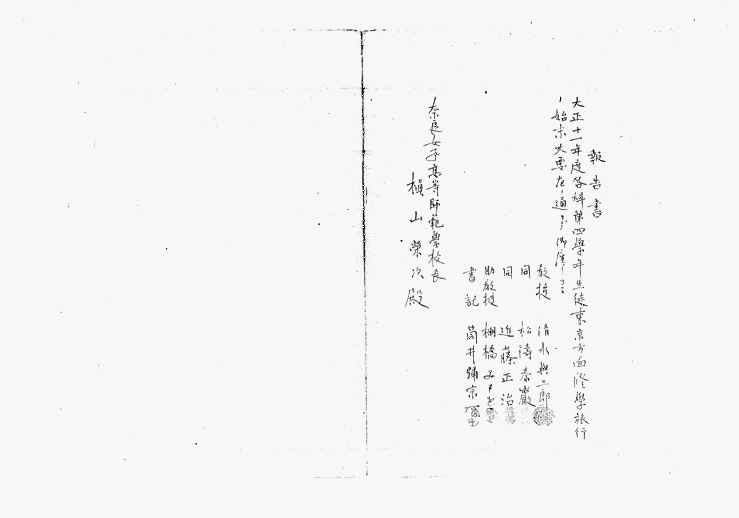 報告書
大正十一年度各科第四學年生徒東京方面修學旅行
ノ始末大要左ノ通
教授 清水與三郎
同 松濤泰巖
同 近藤正治
助教授 棚橋
書記 筒井
奈良女子高等師範學校長
槇山榮次殿